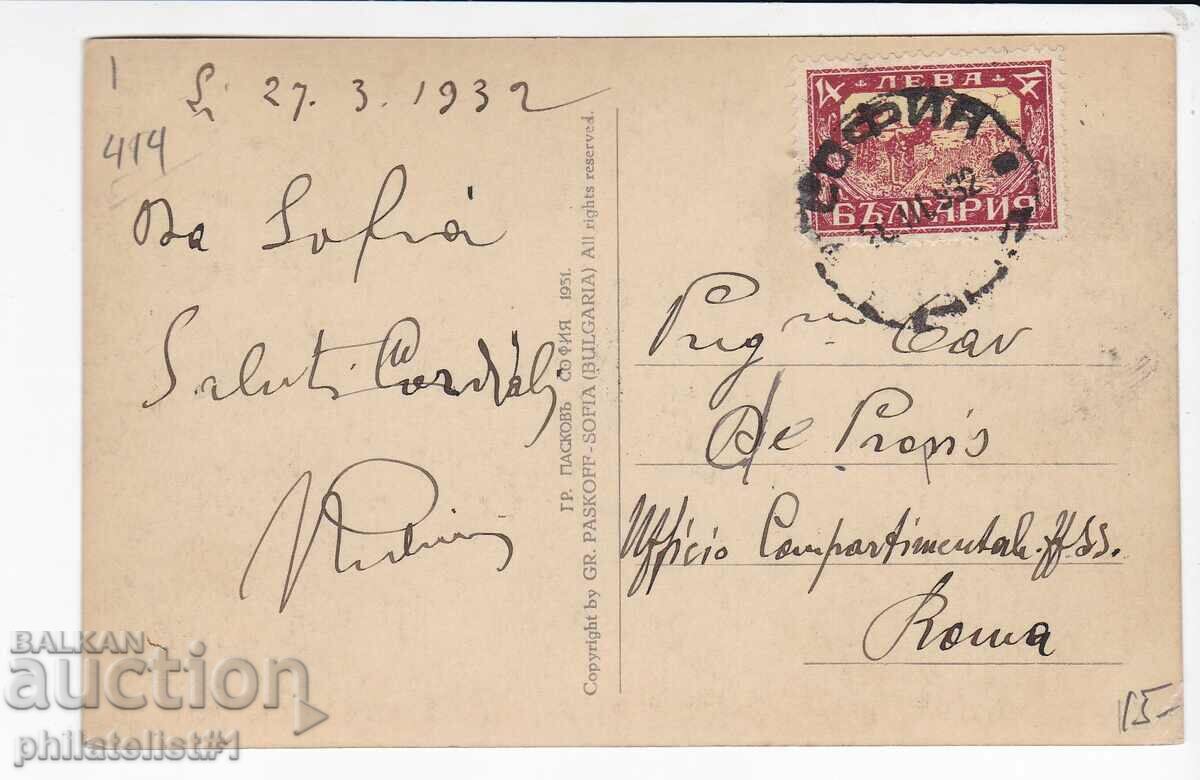 1
27. 3. 1932
414
Da Sofia
Saluti Cordiali
ГР. ПАСКОВЪ СОФИЯ 1931.
Copyright by GR. PASKOFF-SOFIA (BULGARIA) All rights reserved.
4 ЛЕВА 4
БЪЛГАРИЯ
СОФИЯ
932
Cav
De Propis
Ufficio Compartimentale ff SS.
Roma
15-
BALKAN
auction
philatelist#1